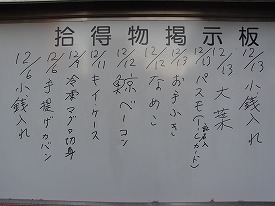 拾得物掲示板
12/13 小銭入れ
12/13 大葉
12/13 パスモ
12/13 お手ふき
12/12 なめこ
12/12 鯨ベーコン
12/11 キイケース
12/9 冷凍マグロ切身
12/6 手提げカバン
12/6 小銭入れ